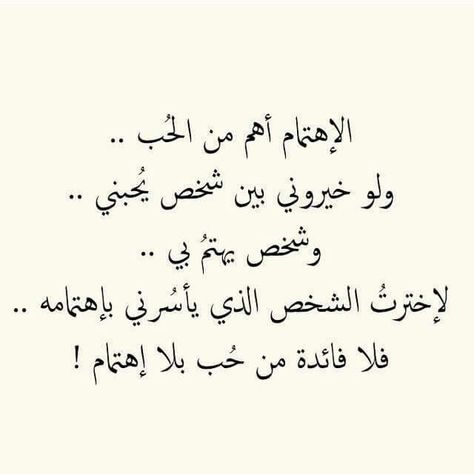 الإهتمام أهم من الحُب ..
ولو خيروني بين شخص يُحبني ..
وشخص يهتمُ بي ..
لإخترتُ الشخص الذي يأسُرني بإهتمامه ..
فلا فائدة من حُب بلا إهتمام !